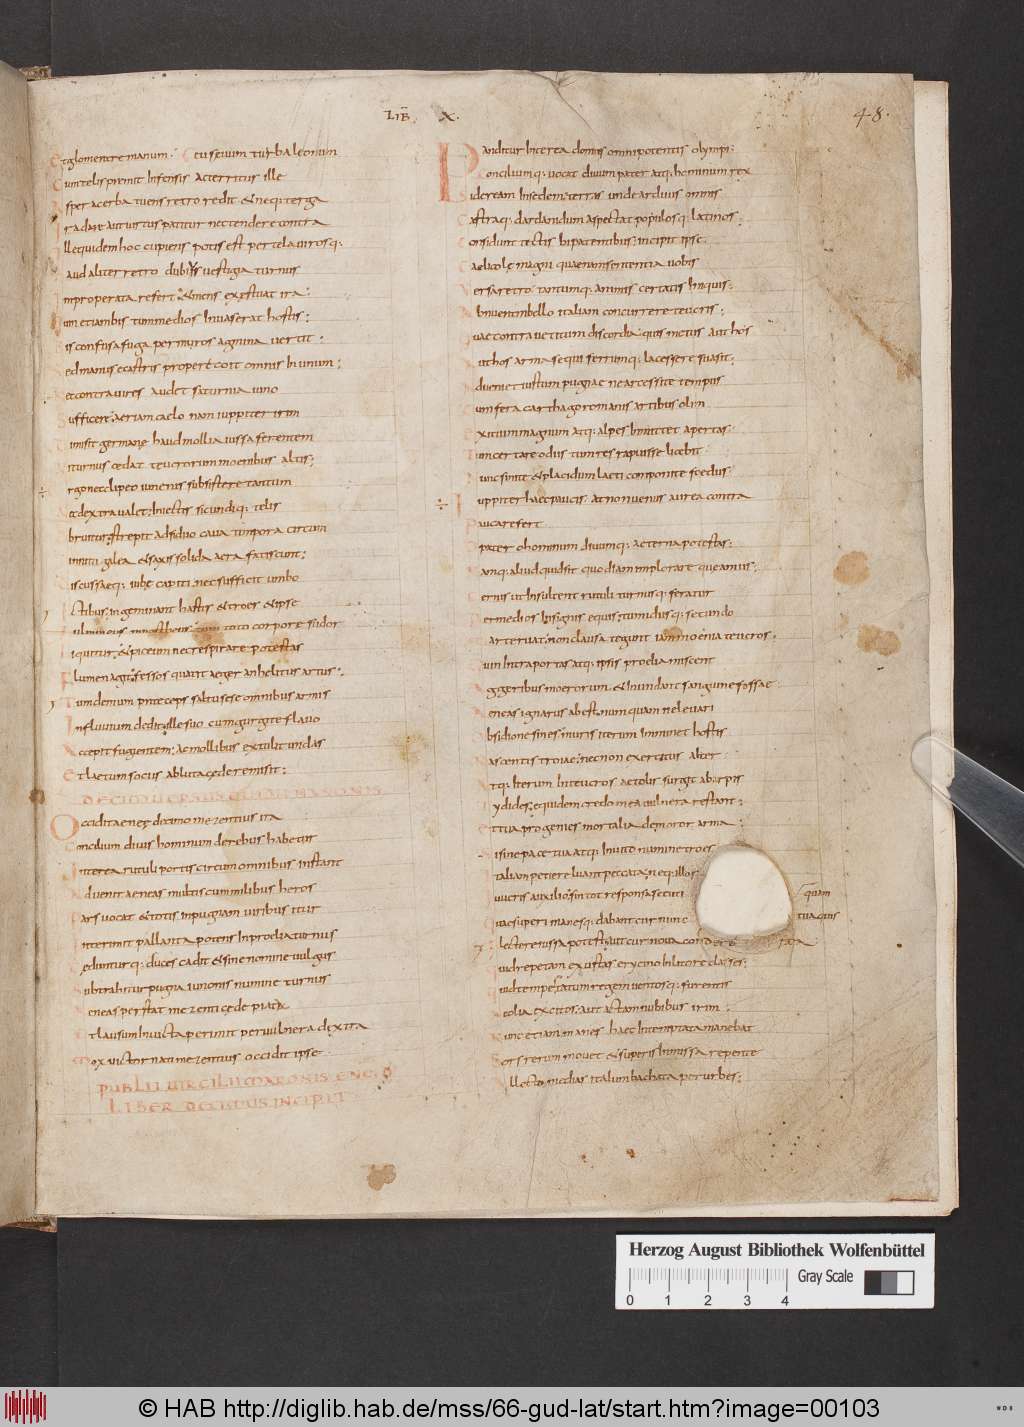 LIB X.
48.
Et glomerare manum. Ceu seuum turba leonum
Cum telis premit infensis acterritus ille
Asper acerba tuens retro redit &neq: terga
Ira dare aut uirtus patitur nec tendere contra
Ille quidem hoc cupiens potis est per tela uirosq:
Haud aliter retro dubiis uestigia turnus
Improperata refert &mens exęstuat ira:
Quin etiam bis tum medios inuaserat hostis:
Bis confusa fuga per muros agmina uertit:
Sed manus e castris propere coit omnis in unum:
Nec contra uires audet saturnia iuno
Sufficere: aeriam caelo nam iuppiter irim
Dimisit germanę haud mollia iussa ferentem
Ni turnus cędat teucrorum moenibus altis:
Ergo nec clipeo iuuenis subsistere tantum
Nec dextra ualet: iniectis sic undiq: telis
Obruitur: strepit adsiduo caua timpora circum
Tinnitu galea &saxis solida aera fatiscunt:
Discussaeq: iubę capiti: nec sufficit umbo
Ictibus: ingeminant hastis &troes &ipse
Fulmineus mnestheus: tum toto corpore sudor
Liquitur: &piceum nec respirare potestas
Flumen agit: fessos quatit aeger anhelitus artus:
Tum demum preceps saltu sese omnibus armis
In fluuium dedit: ille suo cum gurgite flauo
Accepit fugientem: ac mollibus extulit undas
Et laetum sociis abluta cęde remisit:
DECIMI VERSUS OUIDII NASONIS
Occidit aeneę decimo mezentius ira
Concilium diuis hominum de rebus habetur
Interea rutuli portis circum omnibus instant
Aduenit aeneas multis cum milibus heros
Mars uocat &totis in pugnam uiribus itur
Interimit pallanta potens in proelia turnus
Ceduntur q: duces cadit &sine nomine uulgus
Subtrahitur pugna iunonis numine turnus
Aeneas perstat mezenti cęde piata
Et lausum inuicta perimit per uulnera dextra
Mox uictor nati mezentius occidit ipse
PUBLII UIRGILII MARONIS ENE
LIBER DECIMUS INCIPIT
Panditur interea domus omnipotentis olympi:
Concilium q: uocat diuum pater atq: hominum rex
Sideream insedem: terras unde arduus omnis
Castra q: dardanidum aspectat populosq: latinos:
Considunt tectis bipatentibus: incipit ipse.
Caelicolę magni quaenam sententia uobis
Versa retro: tantum q: animis certatis iniquis:
Abnueram bello italiam concurrere teucris:
Quae contra uetitum discordia quis metus aut hos
Aut hos arma sequi ferrumq: lacessere suasit:
Adueniet iustum pugnae ne arcessite tempus
Cum fera carthago romanis artibus olim
Exitium magnum atq: alpes inmittet apertas:
Tum certare odiis tum res rapuisse licebit.
Nunc sinite &placidum laeti componite foedus
Iuppiter haec paucis. At non uenus aurea contra
Pauca refert
O pater o hominum diuumq: aeterna potestas:
Namq: aliud quid sit quod iam implorare queamus:
Cernis ut insultent rutuli turnus q: feratur
Per medios insignis equis: tumidus q: secundo
Marte ruat: non clausa tegunt iam moenia teucros:
Quin intra portas atq: ipsis proelia miscent
Aggeribus moerorum &inundant sanguine fossae
Aeneas ignarus abest. numquam ne leuari
Obsidione sines: muris iterum imminet hostis
Nascentis troiae: nec non exercitus alter
Atq: iterum inteucros aetolis surgit ab arpis
Tydides: equidem credo mea uulnera restant:
Et tua progenies mortalia demoror arma:
Si sine pace tua atq: inuito numine troes
Italiam petiere luant peccata: neq: illos
Iuueris auxilio: sin tot responsa secuti quam
Quae superi manesq: dabant cur nunc tua quis
Flectere iussa potest: aut cur noua condere fata
Quid repetam exustas erycino in litore classes:
Quid tempestatum regem uentos q: furentis
Aeolia excitos: aut actam nubibus irim:
Nunc etiam manes haec intemptata manebat
Sors rerum mouet &superis inmissa repente
Allecto medias italum bachata per urbes:
Herzog August Bibliothek Wolfenbüttel
Gray Scale
0 1 2 3 4
© HAB http://diglib.hab.de/mss/66-gud-lat/start.htm?image=00103